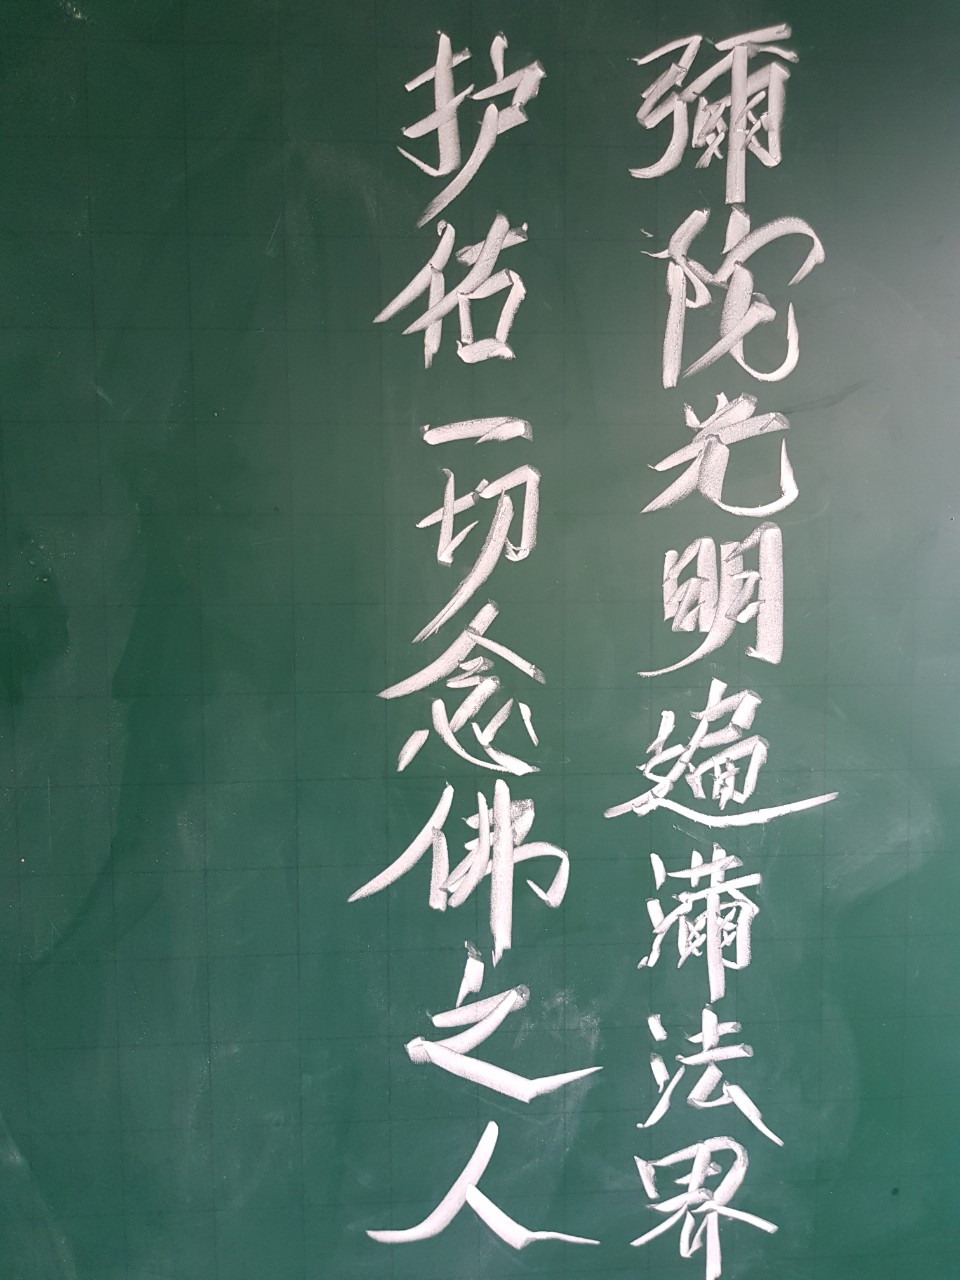 彌陀光明遍滿法界
护佑一切念佛之人